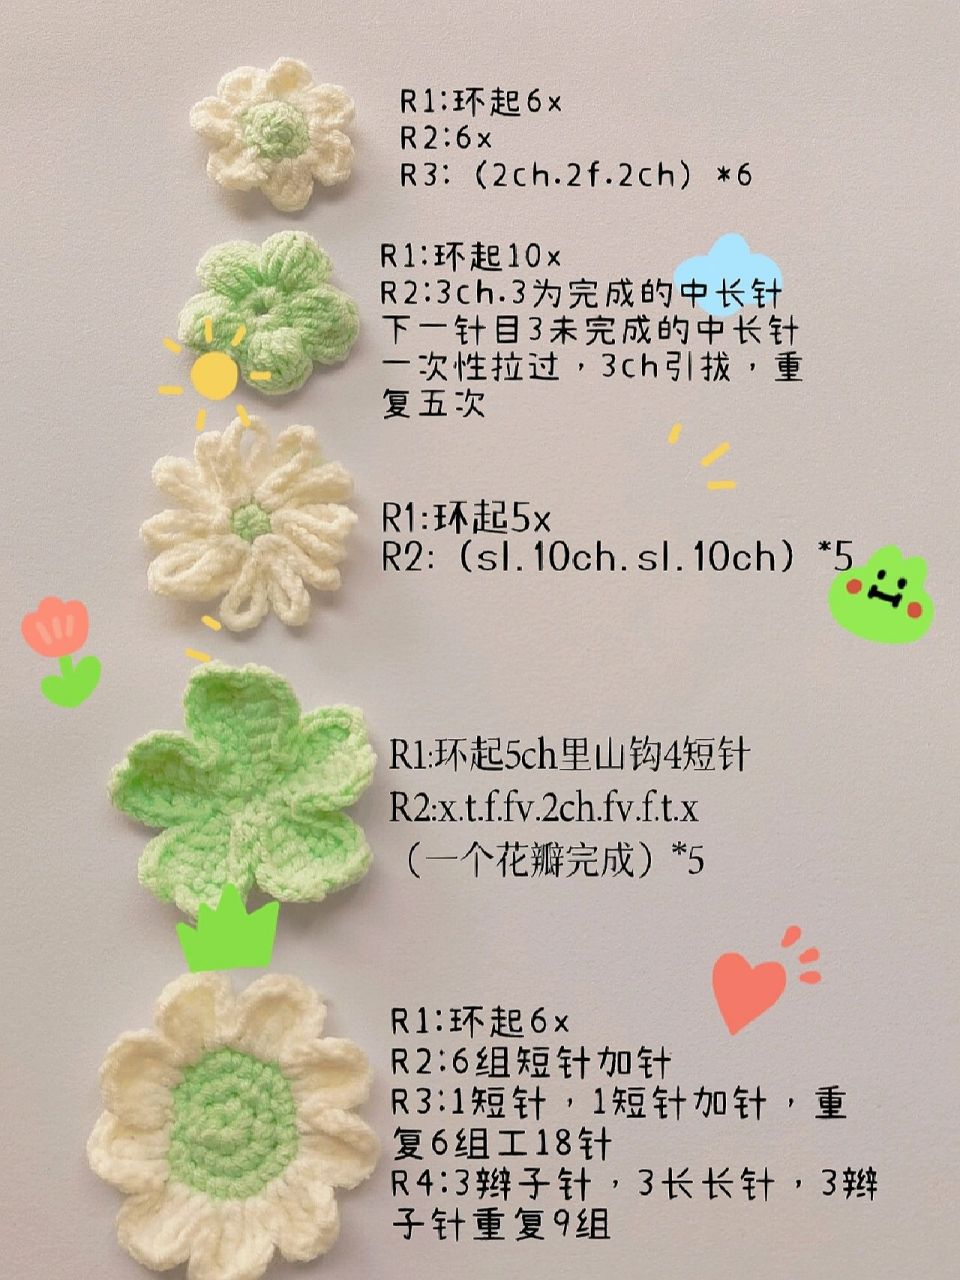 R1:环起6x
R2:6x
R3:（2ch.2f.2ch）*6
R1:环起10x
R2:3ch.3为完成的中长针
下一针目3未完成的中长针
一次性拉过，3ch引拔，重
复五次
R1:环起5x
R2:（sl.10ch.sl.10ch）*5
R1:环起5ch里山钩4短针
R2:x.t.f.fv.2ch.fv.f.t.x
（一个花瓣完成）*5
R1:环起6x
R2:6组短针加针
R3:1短针，1短针加针，重
复6组工18针
R4:3辫子针，3长长针，3辫
子针重复9组